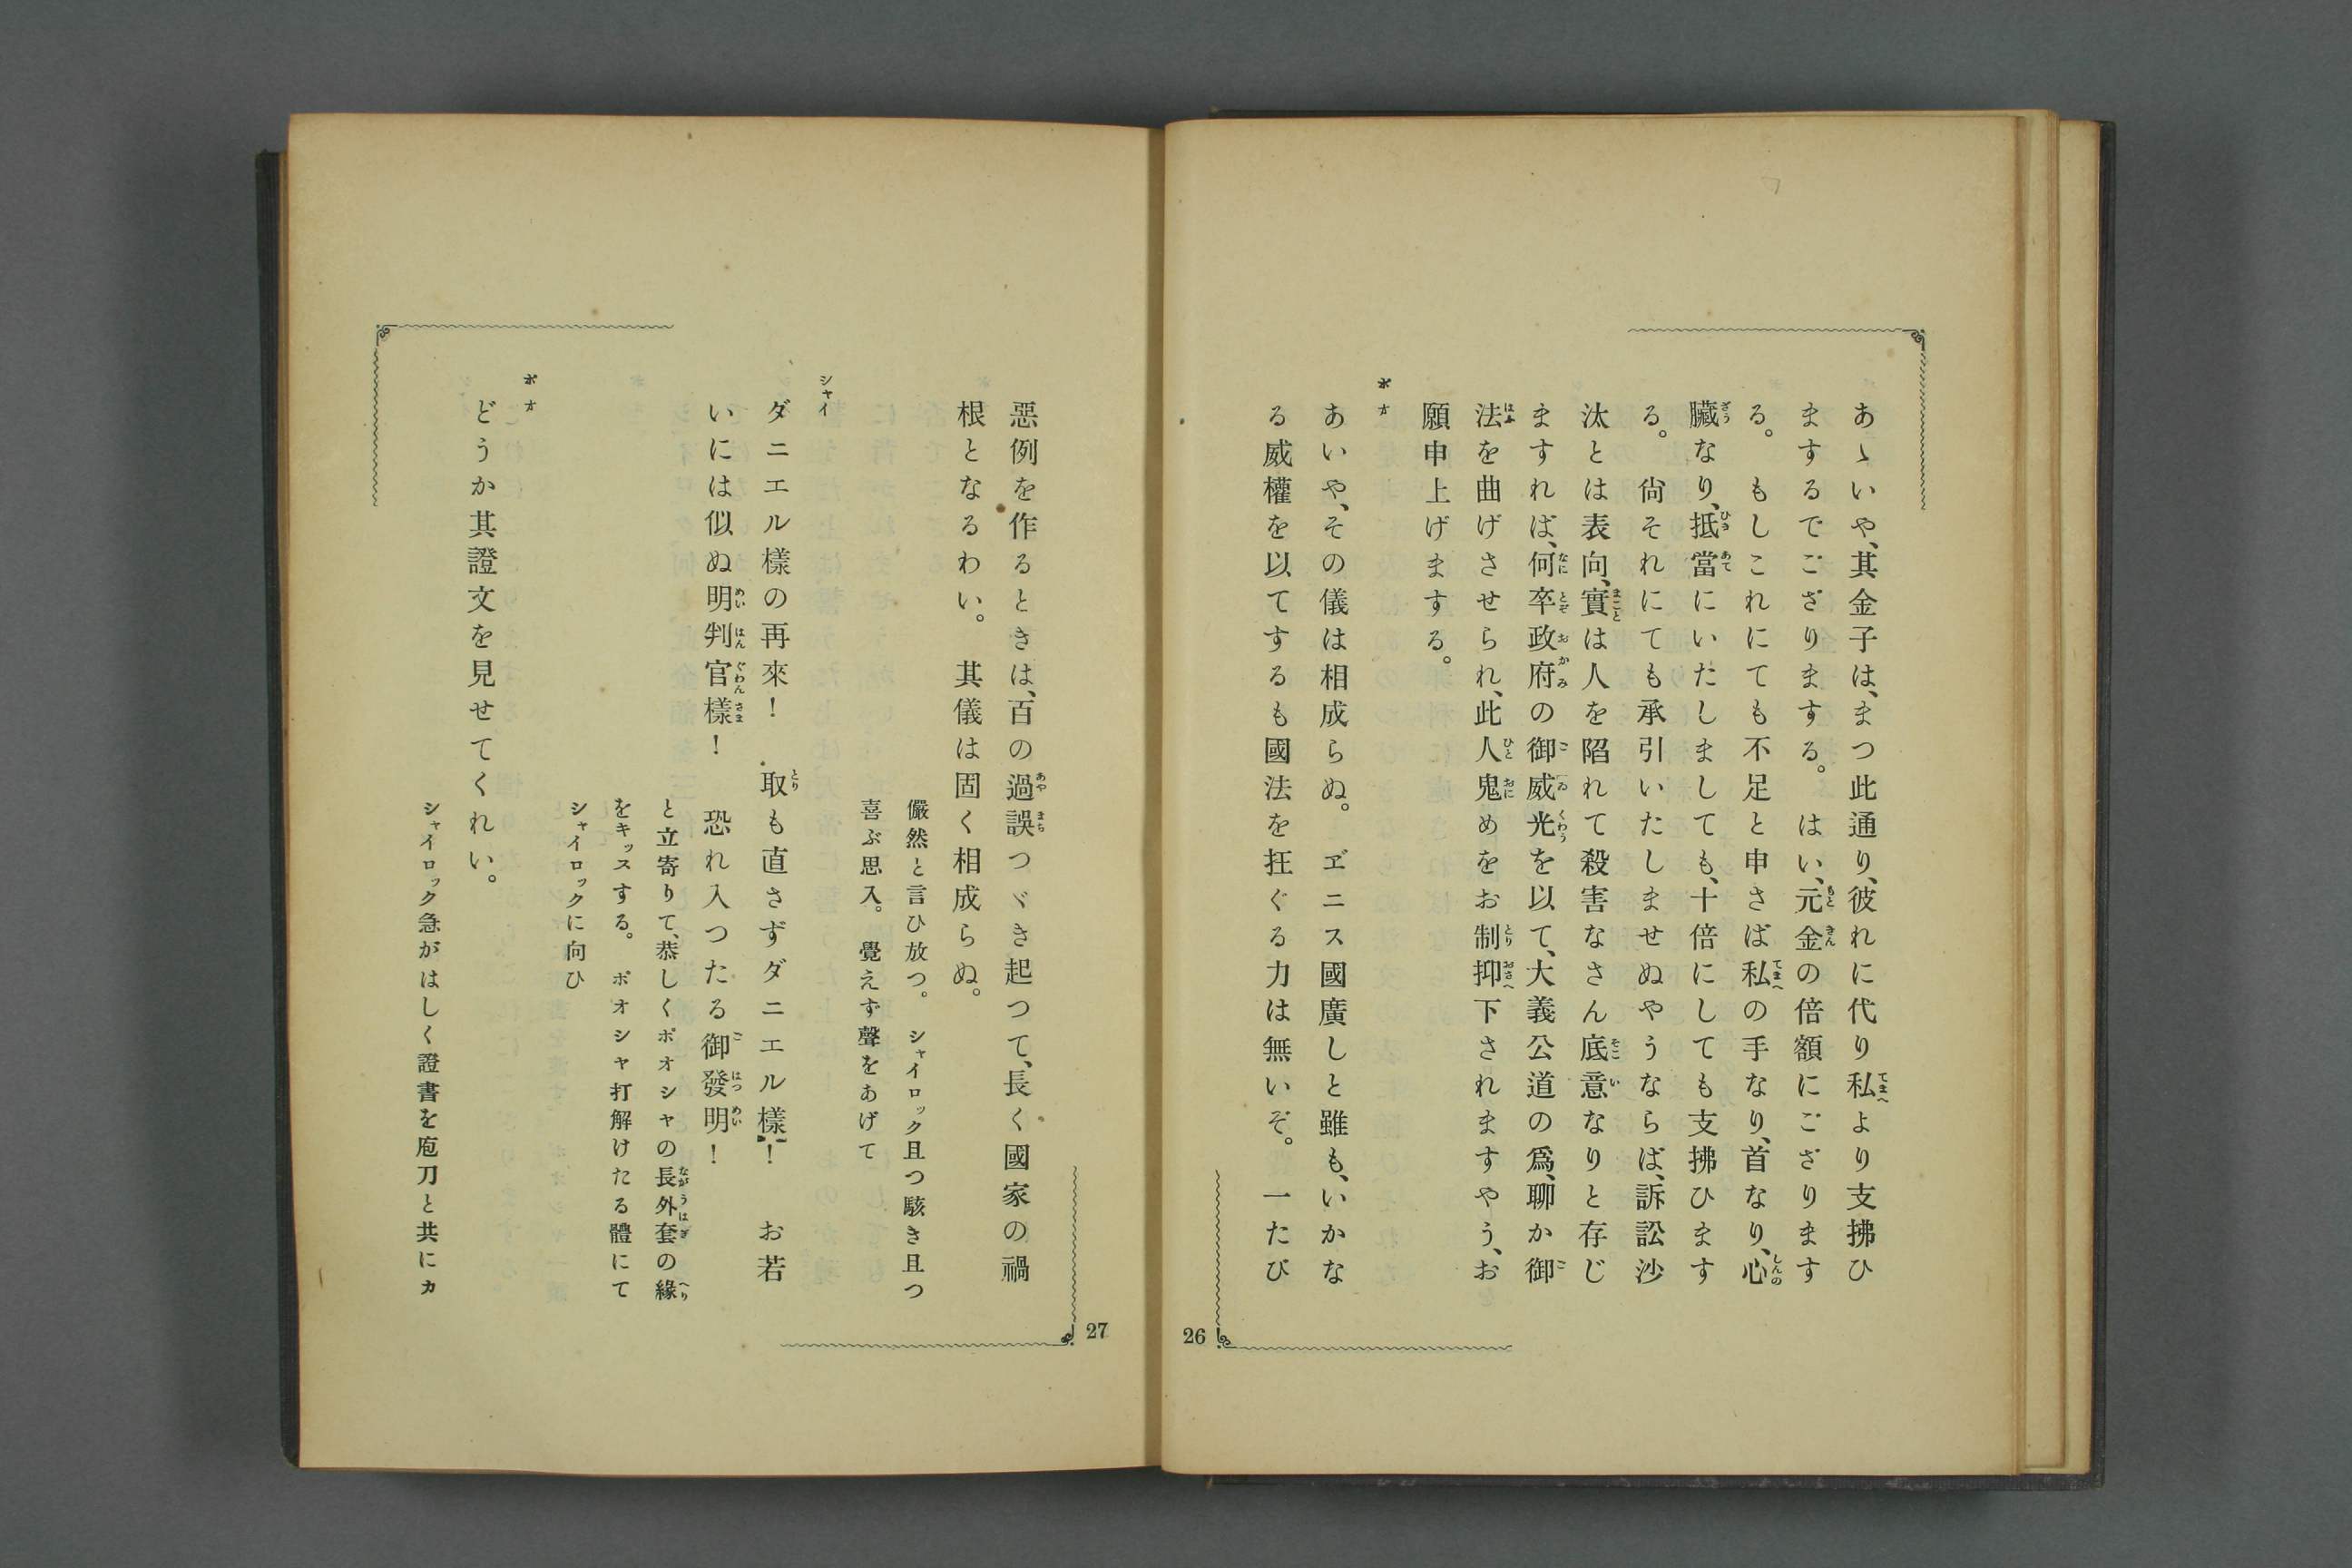 あゝいや、其金子は、まつ此通り、彼れに代り私より支拂ひ
まするでござりまする。　はい、元金の倍額にござります
る。　もしこれにても不足と申さば私の手なり、首なり、心
臟なり、抵當にいたしましても、十倍にしても支拂ひます
る。　尙それにても承引いたしませぬやうならば、訴訟沙
汰とは表向、實は人を陷れて殺害なさん底意なりと存じ
ますれば、何卒政府の御威光を以て、大義公道の爲、聊か御
法を曲げさせられ、此人鬼めをお制抑下されますやう、お
願申上げまする。
ポオ
あいや、その儀は相成らぬ。　ヹニス國廣しと雖も、いかな
る威權を以てするも國法を抂ぐる力は無いぞ。　一たび
26
惡例を作るときは、百の過誤つゞき起つて、長く國家の禍
根となるわい。　其儀は固く相成らぬ。
儼然と言ひ放つ。　シャイロック且つ駭き且つ
喜ぶ思入。　覺えず聲をあげて
シャイ
ダニエル樣の再來！　取も直さずダニエル樣！　お若
いには似ぬ明判官樣！　恐れ入つたる御發明！
と立寄りて、恭しくポオシャの長外套の緣
をキッスする。　ポオシャ打解けたる體にて
シャイロックに向ひ
ポオ
どうか其證文を見せてくれい。
シャイロック急がはしく證書を庖刀と共にカ
27